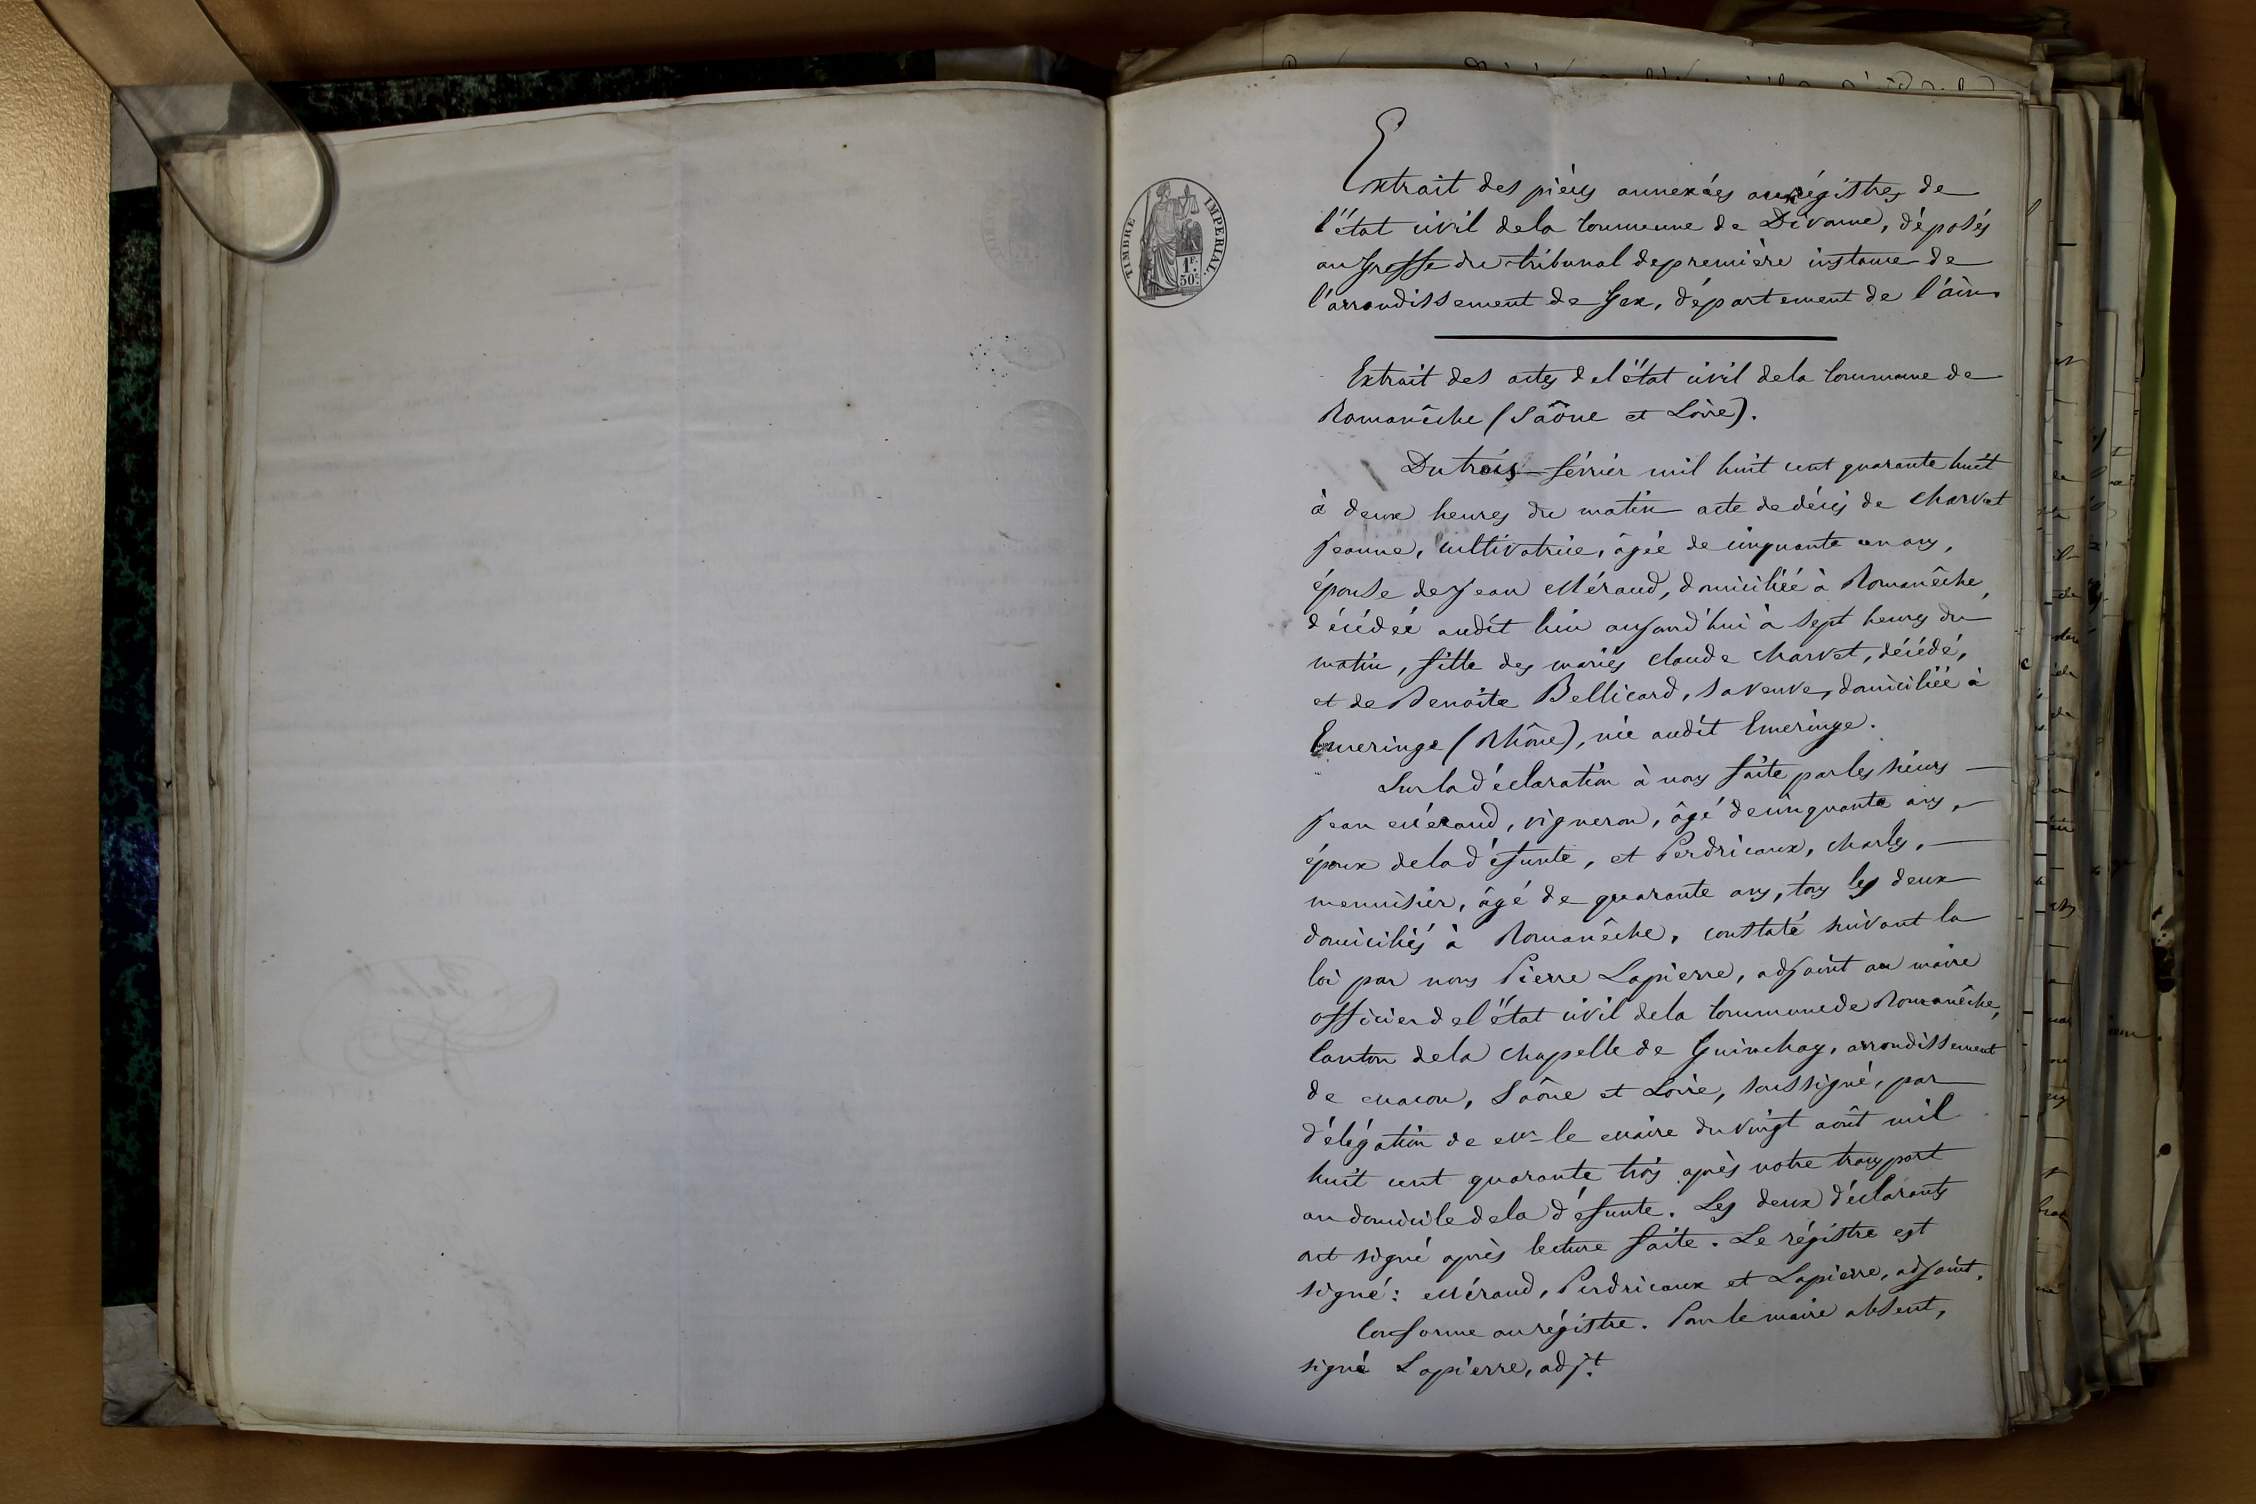 TIMBRE IMPERIAL.
1F.
50c.
Extrait des pièces annexées aux régistres de
l'état civil de la Commune de Divonne, déposés
au Greffe du tribunal de première instance de
l'arrondissement de Gex, département de l'ain.
Extrait des actes de l'état civil de la Commune de
Romanêche (Saône et Loire).
Du trois février mil huit cent quarante huit
à deux heures du matin acte de décès de Charvet
Jeanne, cultivatrice, âgée de cinquante un ans,
épouse de Jean Méraud, domiciliée à Romanêche,
décédée audit lieu aujourd'hui à sept heures du
matin, fille des mariés Claude Charvet, décédé,
et de Benoîte Bellicard, sa veuve, domiciliée à
Emeringe (Rhône), née audit Emeringe.
Sur la déclaration à nous faite par les sieurs
Jean Méraud, vigneron, âgé de cinquante ans,
époux de la défunte, et Perdricaux, Charles,
menuisier, âgé de quarante ans, tous les deux
domiciliés à Romanêche, constaté suivant la
loi par nous Pierre Lapierre, adjoint au maire
officier de l'état civil de la Commune de Romanêche,
Canton de la Chapelle de Guinchay, arrondissement
de Macon, Saône et Loire, soussigné, par
délégation de Mr le Maire du vingt août mil
huit cent quarante trois après notre transport
au domicile de la défunte. Les deux déclarants
ont signé après lecture faite. Le régistre est
signé: Méraud, Perdricaux et Lapierre, adjoint.
Conforme au régistre. Pour le maire absent,
signé Lapierre, adjt.